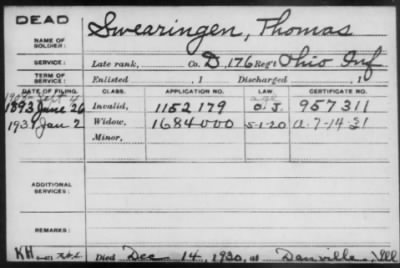 DEAD
NAME OF SOLDIER:
Swearingen, Thomas
SERVICE:
Late rank, Co. D, 176 Reg't Ohio Inf
TERM OF SERVICE:
Enlisted , 1 Discharged , 1
DATE OF FILING. CLASS. APPLICATION NO. LAW. CERTIFICATE NO.
1893 June 26 Invalid, 1152179 O.J. 957311
1931 Jan 2 Widow, 1684000 5-1-20 a. 7-14-31
Minor,
ADDITIONAL SERVICES:
REMARKS:
KH Died Dec 14, 1930, at Danville, Ill